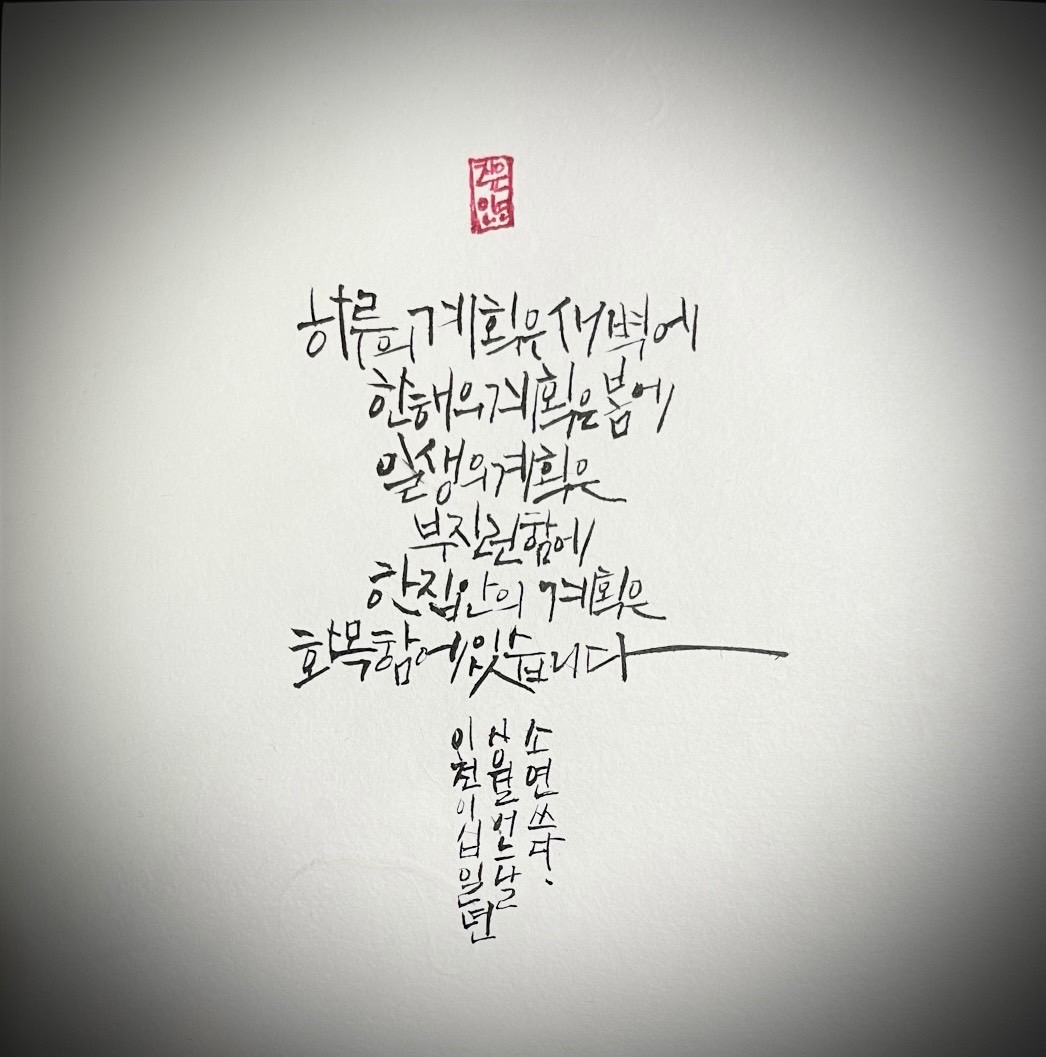 하루의계획은 새벽에
한해의계획은 봄에
일생의계획은
부지런함에
한집안의 계획은
화목함에 있습니다
이천이십일년
어느날
소연 쓰다.